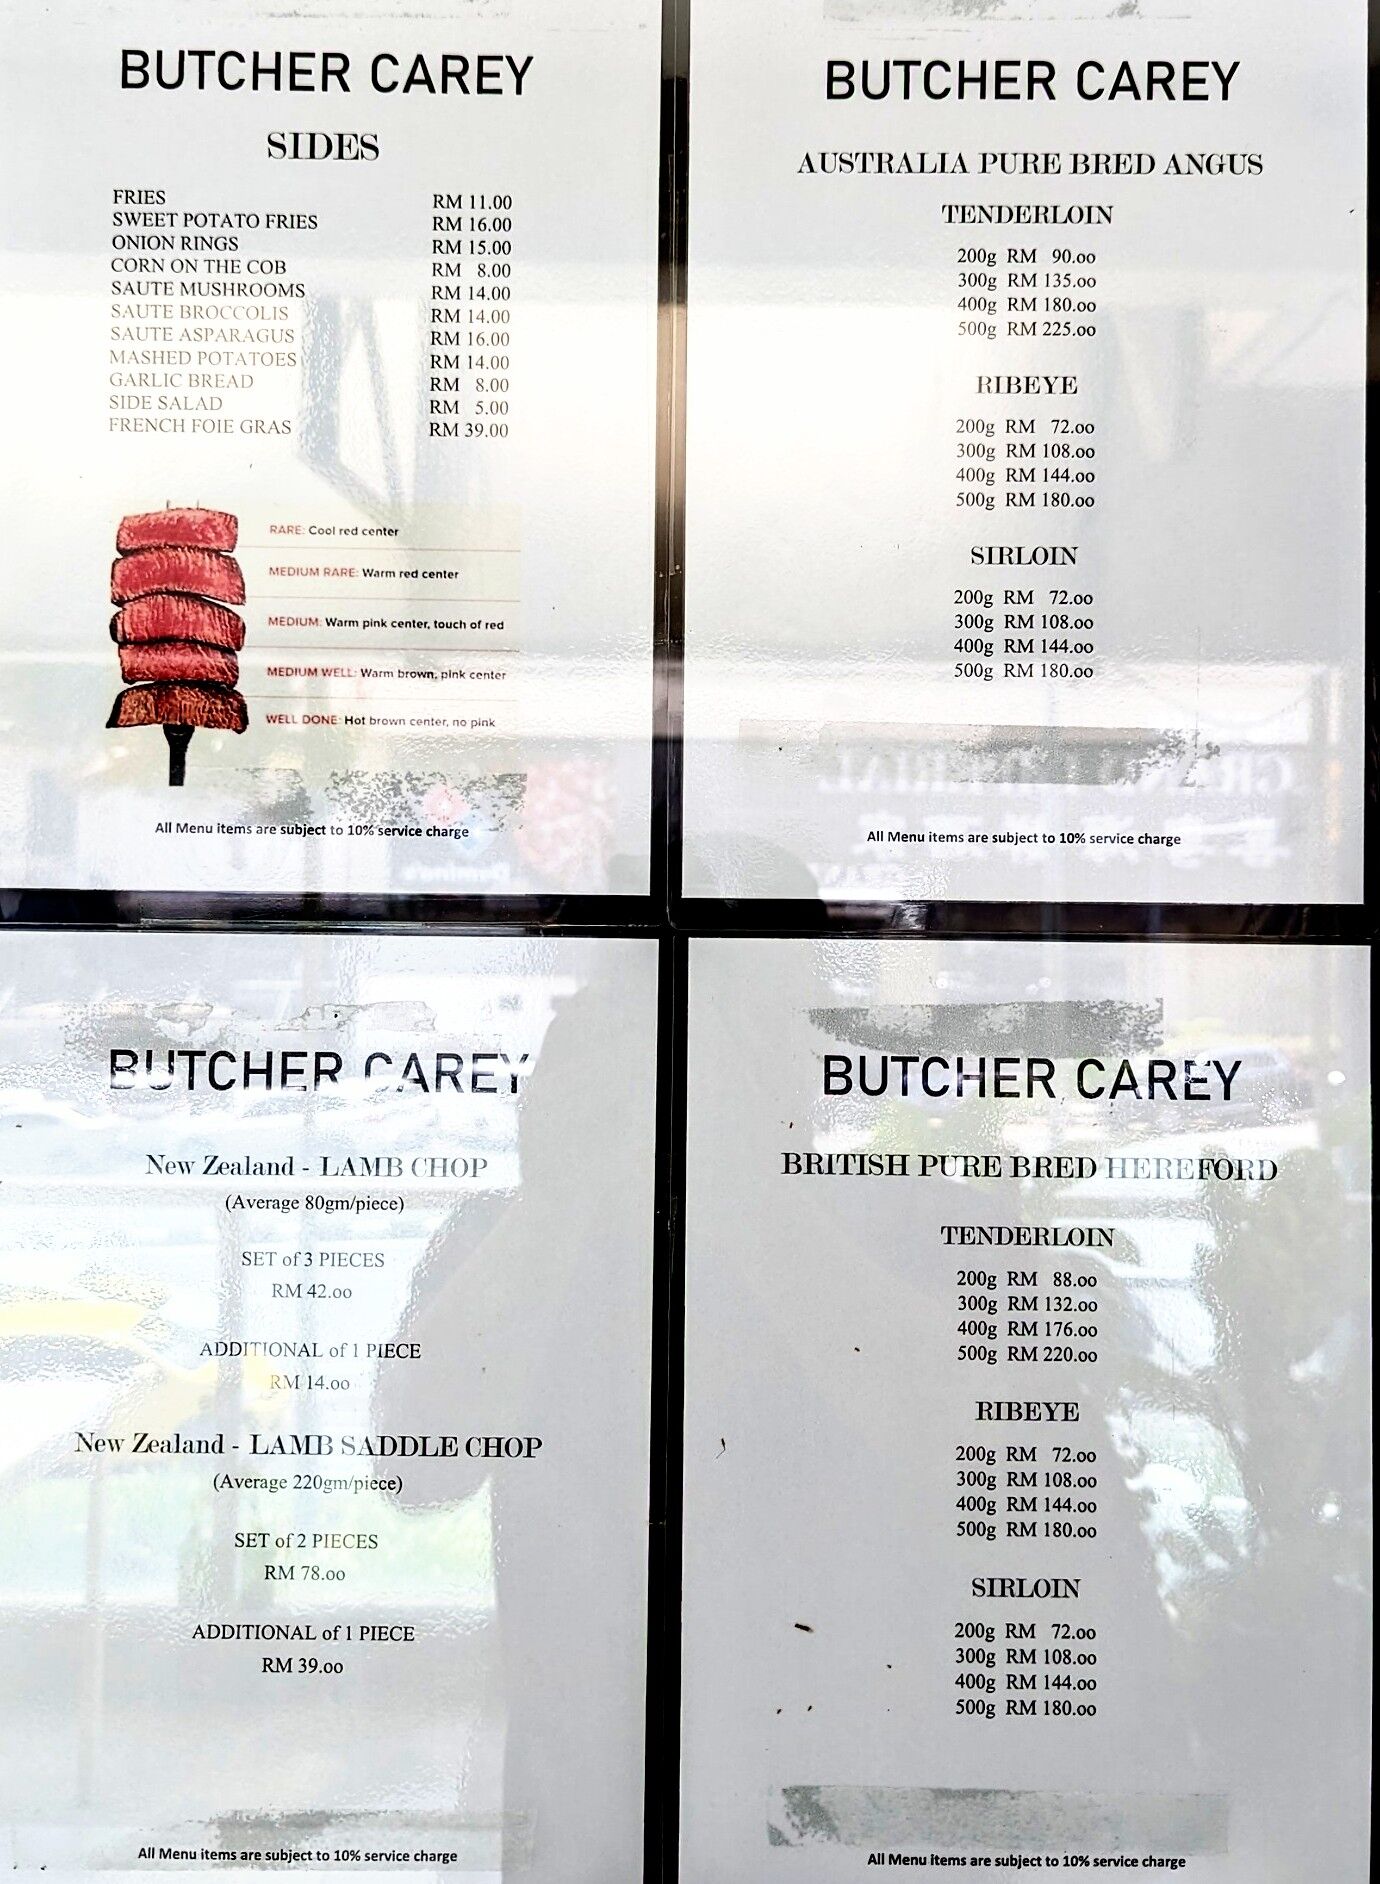 BUTCHER CAREY
SIDES
FRIES RM 11.00
SWEET POTATO FRIES RM 16.00
ONION RINGS RM 15.00
CORN ON THE COB RM 8.00
SAUTE MUSHROOMS RM 14.00
SAUTE BROCCOLIS RM 14.00
SAUTE ASPARAGUS RM 16.00
MASHED POTATOES RM 14.00
GARLIC BREAD RM 8.00
SIDE SALAD RM 5.00
FRENCH FOIE GRAS RM 39.00
RARE: Cool red center
MEDIUM RARE: Warm red center
MEDIUM: Warm pink center, touch of red
MEDIUM WELL: Warm brown, pink center
WELL DONE: Hot brown center, no pink
All Menu items are subject to 10% service charge
BUTCHER CAREY
AUSTRALIA PURE BRED ANGUS
TENDERLOIN
200g RM 90.00
300g RM 135.00
400g RM 180.00
500g RM 225.00
RIBEYE
200g RM 72.00
300g RM 108.00
400g RM 144.00
500g RM 180.00
SIRLOIN
200g RM 72.00
300g RM 108.00
400g RM 144.00
500g RM 180.00
All Menu items are subject to 10% service charge
BUTCHER CAREY
New Zealand - LAMB CHOP
(Average 80gm/piece)
SET of 3 PIECES
RM 42.00
ADDITIONAL of 1 PIECE
RM 14.00
New Zealand - LAMB SADDLE CHOP
(Average 220gm/piece)
SET of 2 PIECES
RM 78.00
ADDITIONAL of 1 PIECE
RM 39.00
All Menu items are subject to 10% service charge
BUTCHER CAREY
BRITISH PURE BRED HEREFORD
TENDERLOIN
200g RM 88.00
300g RM 132.00
400g RM 176.00
500g RM 220.00
RIBEYE
200g RM 72.00
300g RM 108.00
400g RM 144.00
500g RM 180.00
SIRLOIN
200g RM 72.00
300g RM 108.00
400g RM 144.00
500g RM 180.00
All Menu items are subject to 10% service charge